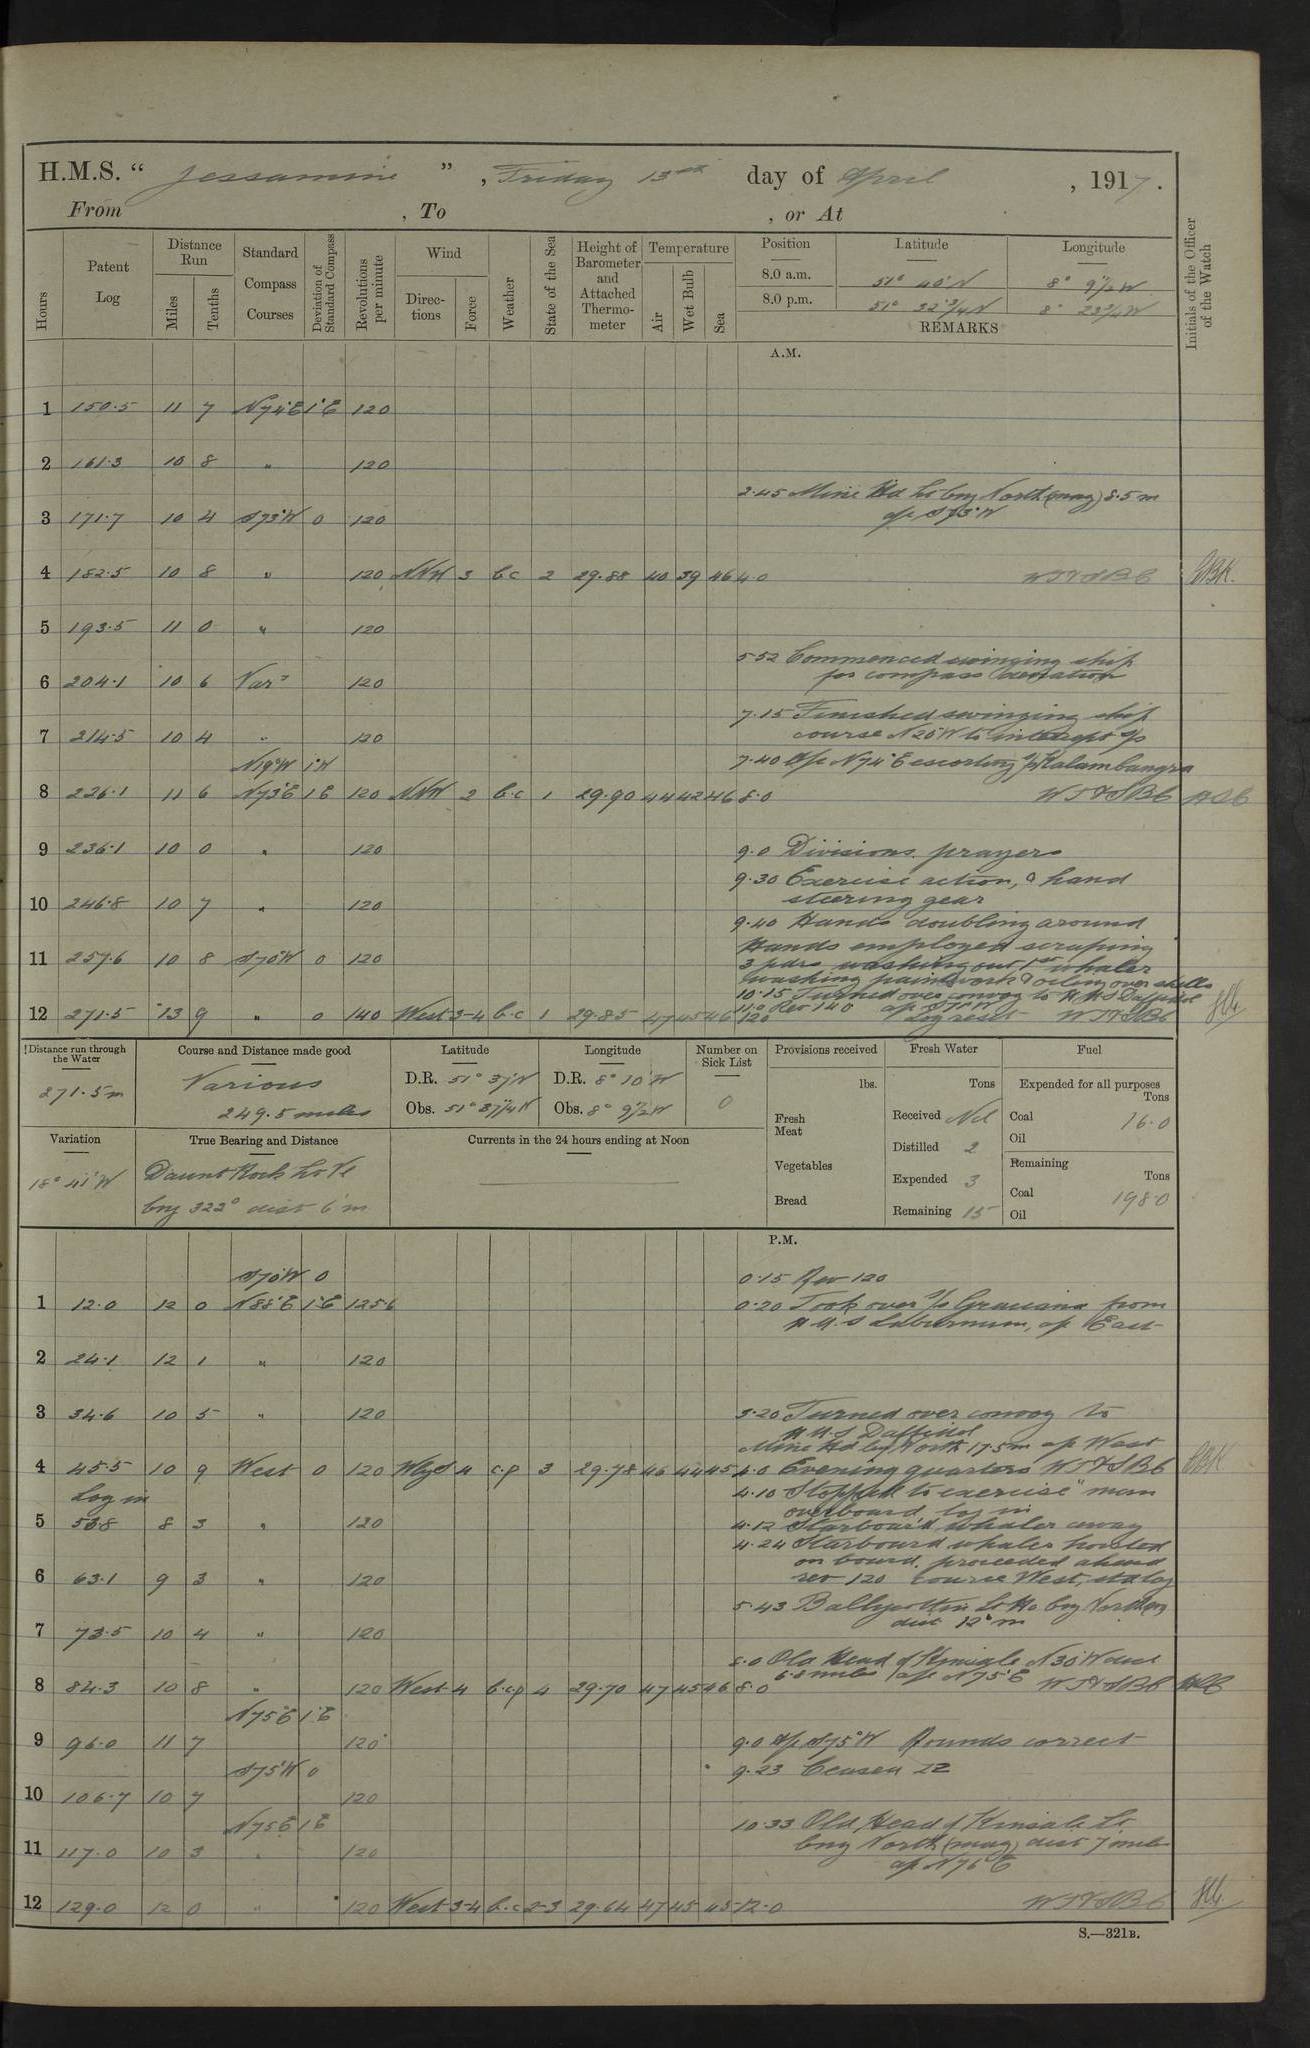 H.M.S. “ Jessamine ” , Friday 13th day of April , 1917.
From , To , or At
Hours
Patent Log
Distance Run
Miles
Tenths
Standard Compass Courses
Deviation of Standard Compass
Revolutions per minute
Wind
Directions
Force
Weather
State of the Sea
Height of Barometer and Attached Thermometer
Temperature
Air
Wet Bulb
Sea
Position Latitude Longitude
8.0 a.m. 51° 40'N 8° 9½'W
8.0 p.m. 51° 32¾'N 8° 23¾'W
REMARKS
Initials of the Officer of the Watch
A.M.
1 150.5 11 7 N74°E 1°E 120
2 161.3 10 8 " 120
2.45 Mine Hd Lt brg North (mag) 8.5 m
3 171.7 10 4 S73°W 0 120 a/c S73°W
4 182.5 10 8 " 120 NNW 3 b.c 2 29.88 40 39 46 4.0
5 193.5 11 0 " 120
5.52 Commenced swinging ship
6 204.1 10 6 Vars 120 for compass deviation
7.15 Finished swinging ship
7 214.5 10 4 " 120 course N20°W to intercept s/s
N19°W 1°W 7.40 a/c N74°E escorting s/s Kalambangra
8 226.1 11 6 N73°E 1°E 120 NNW 2 b.c 1 29.90 44 42 46 8.0
9 236.1 10 0 " 120 9.0 Divisions. prayers
9.30 Exercise action, & hand
10 246.8 10 7 " 120 steering gear
9.40 Hands doubling around
Hands employed scraping
11 257.6 10 8 S70°W 0 120 3 pdrs washing out 1st whaler
washing paintwork & oiling over shells
10.15 Turned over convoy to H.M.S Daffodil
Rev 140 a/c S70°W
12 271.5 13 9 " 0 140 West 3-4 b.c 1 29.85 47 45 46 120 Log reset
Distance run through the Water
271.5 m
Course and Distance made good
Various
249.5 miles
Latitude
D.R. 51° 37'N
Obs. 51° 37¼'N
Longitude
D.R. 8° 10'W
Obs. 8° 9½'W
Number on Sick List
0
Provisions received
lbs.
Fresh Meat
Vegetables
Bread
Fresh Water
Tons
Received Nil
Distilled 2
Expended 3
Remaining 15
Fuel
Expended for all purposes
Tons
Coal 16.0
Oil
Remaining
Tons
Coal 198.0
Oil
Variation
18° 41'W
True Bearing and Distance
Daunt Rock Lt Vl
brg 322° dist 6'm
Currents in the 24 hours ending at Noon
P.M.
S70°W 0 0.15 Rev 120
1 12.0 12 0 N88°E 1°E 125.6 0.20 Took over s/s Graciana from
H.M.S Laburnum, a/c East
2 24.1 12 1 " 120
3 34.6 10 5 " 120 3.20 Turned over convoy to
H.M.S Daffodil
Mine Hd brg North 17.5m a/c West
4 45.5 10 9 West 0 120 Wly 4 c.p 3 29.78 46 44 45 4.0 Evening quarters
Log in 4.10 Stopped to exercise "man
overboard, log in
5 53.8 8 3 " 120 4.12 Starboard whaler away
4.24 Starboard whaler hoisted
on board. proceeded ahead
6 63.1 9 3 " 120 rev 120 course West, std log
5.43 Ballycottin Lt Ho brg North (mag)
7 73.5 10 4 " 120 dist 12'm
8.0 Old Head of Kinsale N30°W dist
6.8 miles a/c N75°E
8 84.3 10 8 " 120 West 4 b.c.p 4 29.70 47 45 46 8.0
N75°E 1°E
9 96.0 11 7 120 9.0 a/c S75°W Rounds correct
S75°W 0 9.23 Ceased ZZ
10 106.7 10 7 120
N75°E 1°E 10.33 Old Head of Kinsale Lt
11 117.0 10 3 " 120 brg North (mag) dist 7 miles
a/c N75°E
12 129.0 12 0 " 120 West 3-4 b.c 2-3 29.64 47 45 45 12.0
S.—321B.